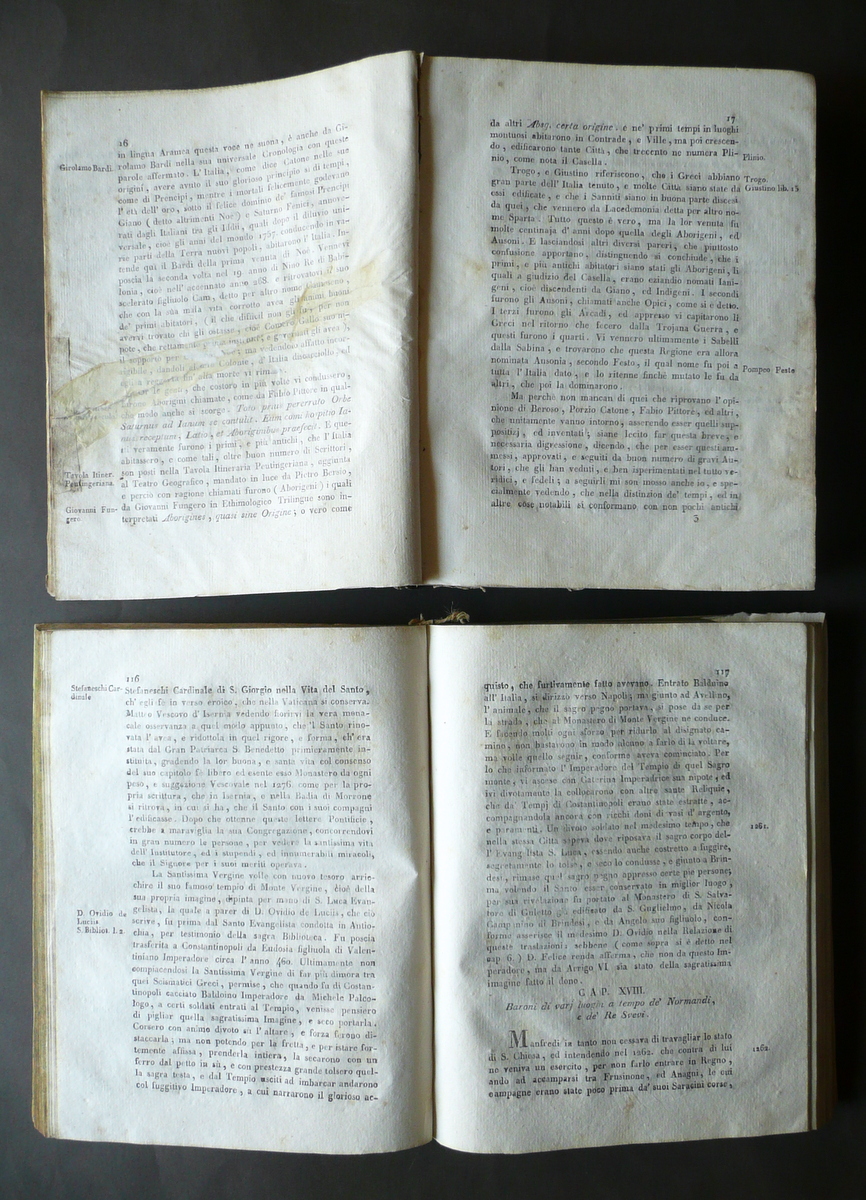 16
in lingua Aramea questa voce ne suona, è anche da Gi-
Girolamo Bardi
rolamo Bardi nella sua universale Cronologia con queste
parole affermato. L' Italia, come dice Catone nelle sue
origini, avere avuto il suo glorioso principio si di tempi,
come di Prencipi, mentre i mortali felicemente godevano
l' età dell' oro, sotto il felice dominio de' famosi Prencipi
Giano (detto altrimenti Noè) e Saturno Fenici, annove-
rati dagli Italiani tra gli Iddii, quali dopo il diluvio uni-
versale, cioè gli anni del mondo 1757. conducendo in va-
rie parti della Terra nuovi popoli, abitarono l' Italia. In-
tende qui il Bardi della prima venuta di Noè. Vennevi
poscia la seconda volta nel 19 anno di Nino Re di Babi-
lonia, cioè nell' accennato anno 268. e ritrovatovi il suo
scelerato figliuolo Cam, detto per altro nome
che con la sua mala vita corrotto avea gli animi buoni
de' primi abitatori, (il che difficil non gli fu per non
avervi trovato chi gli ostasse, cioè Comero Gallo suo ni-
pote, che rettamente
vedendolo affatto incor-
d' Italia discacciollo, ed
alla morte vi rimase.
che costoro in più volte vi condussero,
Aborigini chiamate, come da Fabio Pittore in qual-
che modo anche si scorge. Toto prius pererrato Orbe
Saturnus ad Ianum se contulit. Eum cum hospitio Ia-
nus receptum, Latio, et Aboriginibus praefecit. E que-
sti veramente furono i primi, e più antichi, che l' Italia
abitassero, e come tali, oltre buon numero di Scrittori,
Tavola Itiner.
Peutingeriana
son posti nella Tavola Itineraria Peutingeriana, aggiunta
al Teatro Geografico, mandato in luce da Pietro Bersio,
e perciò con ragione chiamati furono (Aborigeni) i quali
Giovanni Fun-
gero
da Giovanni Fungero in Ethimologico Trilingue sono in-
terpretati Aborigines, quasi sine Origine; o vero come
17
da altri Absq. certa origine. e ne' primi tempi in luoghi
montuosi abitarono in Contrade, e Ville, ma poi crescen-
do, edificarono tante Città, che trecento ne numera Pli-
Plinio.
nio, come nota il Casella.
Trogo, e Giustino riferiscono, che i Greci abbiano
Trogo.
gran parte dell' Italia tenuto, e molte Città siano state da
Giustino lib. 23
essi edificate, e che i Sanniti siano in buona parte discesi
da quei, che vennero da Lacedemonia detta per altro no-
me Sparta. Tutto questo è vero, ma la lor venuta fu
molte centinaja d' anni dopo quella degli Aborigeni, ed
Ausoni. E lasciandosi altri diversi pareri, che piuttosto
confusione apportano, distinguendo si conchiude, che i
primi, e più antichi abitatori siano stati gli Aborigeni, li
quali a giudizio del Casella, erano eziandio nomati Iani-
geni, cioè discendenti da Giano, ed Indigeni. I secondi
furono gli Ausoni, chiamati anche Opici, come si è detto.
I terzi furono gli Arcadi, ed appresso vi capitarono li
Greci nel ritorno che fecero dalla Trojana Guerra, e
questi furono i quarti. Vi vennero ultimamente i Sabelli
dalla Sabina, e trovarono che questa Regione era allora
nominata Ausonia, secondo Festo, il qual nome fu poi a
Pompeo Festo
tutta l' Italia dato, e lo ritenne finchè mutato le fu da
altri, che poi la dominarono.
Ma perchè non mancan di quei che riprovano l' opi-
nione di Beroso, Porzio Catone, Fabio Pittore, ed altri,
che unitamente vanno intorno, asserendo esser quelli sup-
positizj, ed inventati, siane lecito far questa breve, e
necessaria digressione, dicendo, che per esser questi am-
messi, approvati, e seguiti da buon numero di gravi Au-
tori, che gli han veduti, e ben isperimentati nel tutto ve-
ridici, e fedeli; a seguirli mi son mosso anche io, e spe-
cialmente vedendo, che nella distinzion de' tempi, ed in
altre cose notabili si conformano con non pochi antichi
3
116
Stefaneschi Car-
dinale
Stefaneschi Cardinale di S. Giorgio nella Vita del Santo,
ch' egli fè in verso eroico, che nella Vaticana si conserva.
Matteo Vescovo d' Isernia vedendo fiorirvi la vera mona-
cale osservanza a quel molto appunto, che 'l Santo rino-
vata l' avea, e ridottola in quel rigore, e forma, ch' era
stata dal Gran Patriarca S. Benedetto primieramente in-
stituita, gradendo la lor buona, e santa vita col consenso
del suo capitolo fe libero ed esente esso Monastero da ogni
peso, e suggezione Vescovale nel 1276. come per la pro-
pria scrittura, che in Isernia, e nella Badia di Morrone
si ritrova, in cui si ha, che il Santo con i suoi compagni
l' edificasse. Dopo che ottenne queste lettere Pontificie,
crebbe a maraviglia la sua Congregazione, concorrendovi
in gran numero le persone, per vedere la santissima vita
dell' Institutore, ed i stupendi, ed innumerabili miracoli,
che il Signore per i suoi meriti operava.
La Santissima Vergine volle con nuovo tesoro arric-
chire il suo famoso tempio di Monte Vergine, cioè della
sua propria imagine, dipinta per mano di S. Luca Evan-
D. Ovidio de
Luciis
S. Bibliot. l. 2.
gelista, la quale a parer di D. Ovidio de Luciis, che ciò
scrive, fu prima dal Santo Evangelista condotta in Antio-
chia, per testimonio della sagra Biblioteca. Fu poscia
trasferita a Constantinopoli da Eudosia figliuola di Valen-
tiniano Imperadore circa l' anno 460. Ultimamente non
compiacendosi la Santissima Vergine di far più dimora tra
quei Scismatici Greci, permise, che quando fu di Costan-
tinopoli cacciato Baldoino Imperadore da Michele Paleo-
logo, a certi soldati entrati al Tempio, venisse pensiero
di pigliar quella sagratissima Imagine, e seco portarla.
Corsero con animo divoto su l' altare, e forza ferono di-
staccarla; ma non potendo per la fretta, e per istare for-
temente affissa, prenderla intiera, la secarono con un
ferro dal petto in sù, e con prestezza grande tolsero quel-
la sagra testa, e dal Tempio usciti ad imbarcar andarono
col fuggitivo Imperadore, a cui narrarono il glorioso ac-
117
quisto, che furtivamente fatto avevano. Entrato Balduino
all' Italia, si dirizzò verso Napoli; ma giunto ad Avellino,
l' animale, che il sagro pegno portava, si pose da se per
la strada, che al Monastero di Monte Vergine ne conduce.
E facendo molti ogni sforzo per ridurla al disignato ca-
mino, non bastarono in modo alcuno a farlo di là voltare,
ma volle quello seguir, conforme aveva cominciato. Per
lo che informato l' Imperadore del Tempio di quel Sagro
monte, vi ascese con Caterina Imperadrice sua nipote, ed
ivi divotamente la collocarono con altre sante Reliquie,
che da' Tempj di Costantinopoli erano state estratte, ac-
compagnandola ancora con ricchi doni di vasi d' argento,
e paramenti. Un divoto soldato nel medesimo tempo, che
1261.
nella stessa Città sapeva dove riposava il sagro corpo del-
l' Evangelista S. Luca, essendo anche costretto a fuggire,
segretamente lo tolse, e seco lo condusse, e giunto a Brin-
desi, rimase quel sagro pegno appresso certe pie persone;
ma volendo il Santo esser conservato in miglior luogo,
per sua rivelazione fu portato al Monastero di S. Salva-
tore di Guleto già edificato da S. Guglielmo, da Nicola
di Brindesi, e da Angelo suo figliuolo, con-
forme asserisce il medesimo D. Ovidio nella Relazione di
queste traslazioni sebbene (come sopra si è detto nel
cap 6.) D. Felice renda afferma, che non da questo Im-
peradore, ma da Arrigo VI sia stato della sagratissima
imagine fatto il dono.
CAP. XVIII.
Baroni di varj luoghi a tempo de' Normandi,
e de' Re Svevi.
Manfredi in tanto non cessava di travagliar lo stato
di S. Chiesa, ed intendendo nel 1262. che contra di lui
1262.
ne veniva un esercito, per non farlo entrare in Regno,
andò ad accamparsi tra Frusinone, ed Anagni, le cui
campagne erano state poco prima da' suoi Saracini corse,